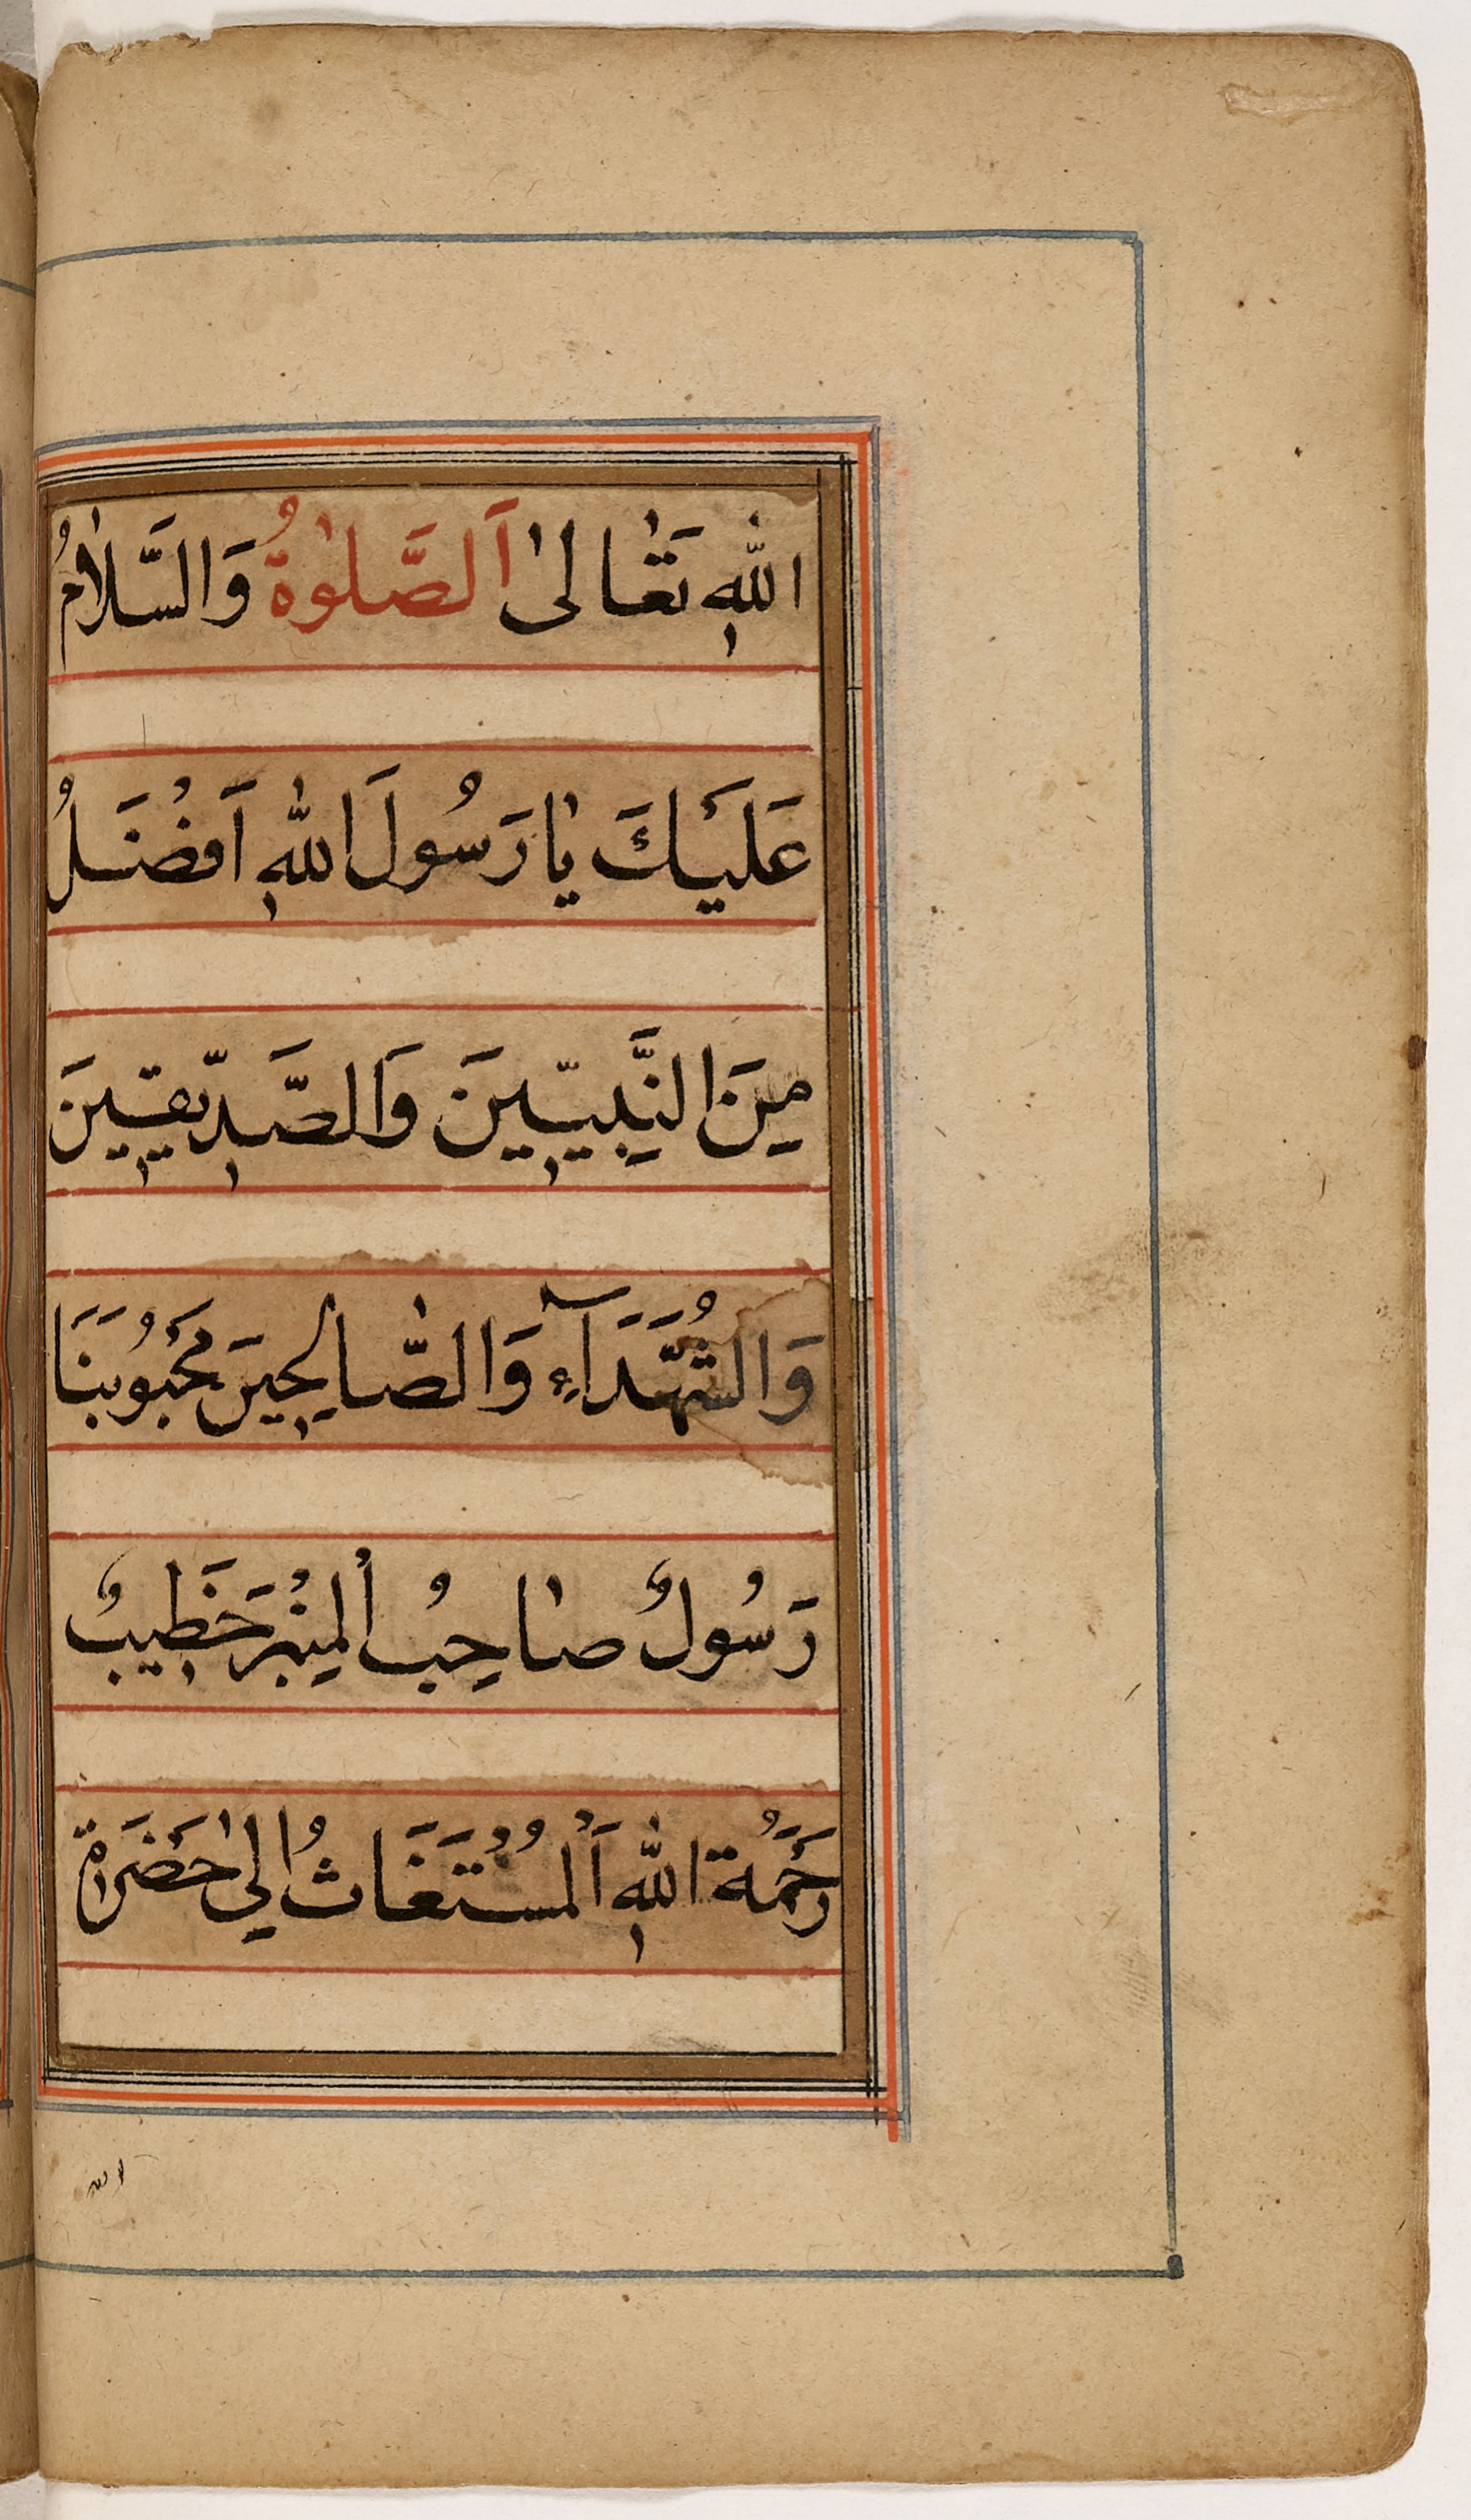 اللهِ تَعَالىٰ اَلصَّلوٰةُ وَالسَّلَامُ
عَلَيْكَ يَا رَسُولَ اللهِ اَفْضَلُ
مِنَ النَّبِيّينَ وَالصَّدّيقينَ
وَالشُّهَدَآءِ وَالصَّالِحينَ مَحْبُوبُنَا
رَسُولٌ صَاحِبُ الْمِنْبَر خَطيبٌ
رَحْمَةُ اللهِ اَلْمُسْتَغَاثُ اِلىٰ حَضْرَاة
الله